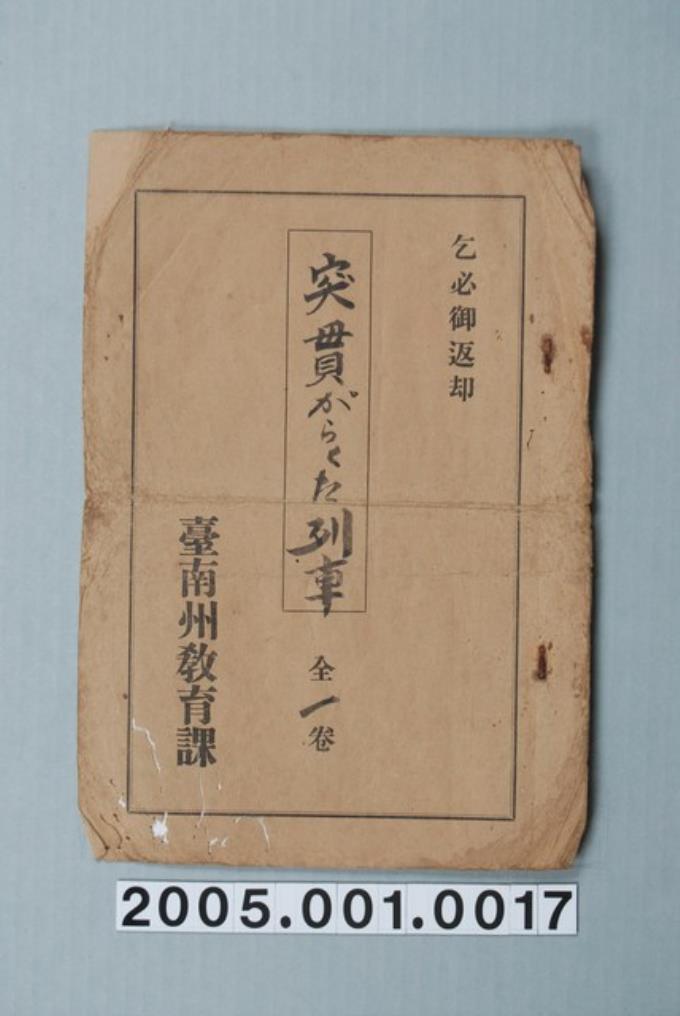 乞必御返却
突貫がらくた列車
全一卷
臺南州敎育課
2005.001.0017